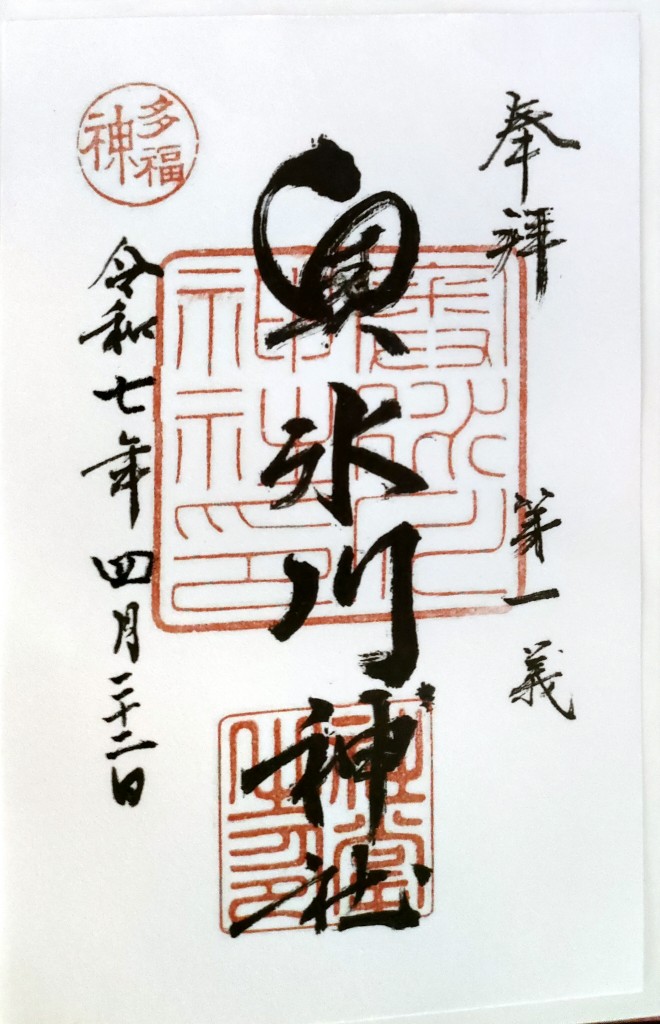 奉拝
第一義
奥氷川神社
令和七年四月二十二日
多福
神